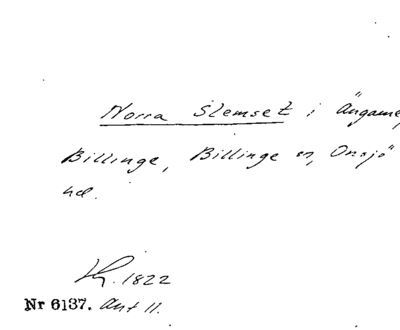 Norra Slemset i Ängarne,
Billinge, Billinge sn, Onsjö
hd.
Hg. 1822
Nr 6137. Akt 11.